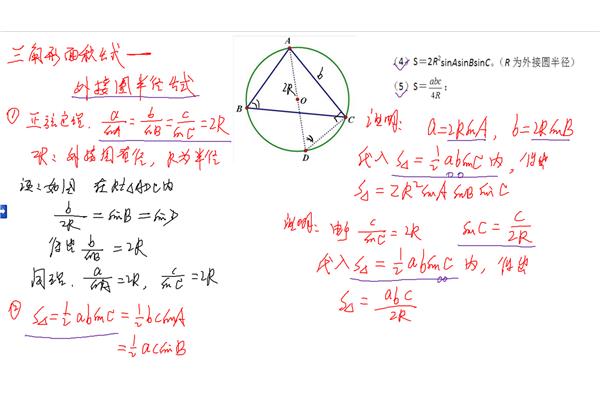 三角形面积公式一
外接圆半径公式
① 正弦定理. a/sinA = b/sinB = c/sinC = 2R
2R:外接圆直径,R为半径
证:如图 在Rt△ADC内
b/2R = sinB = sinD
得出 b/sinB = 2R
同理. a/sinA = 2R, c/sinC = 2R
② S△ = 1/2 absinC = 1/2 bcsinA
= 1/2 acsinB
A
b
2R
O
B
C
D
(4) S=2R²sinAsinBsinC。(R 为外接圆半径)
(5) S=abc/4R;
证明: a=2RsinA, b=2RsinB
代入 S△ = 1/2 absinC 内, 得出
S△ = 2R²sinA sinB sinC
证明: 由 c/sinC = 2R sinC = c/2R
代入 S△ = 1/2 absinC 内, 得出
S△ = abc/2R